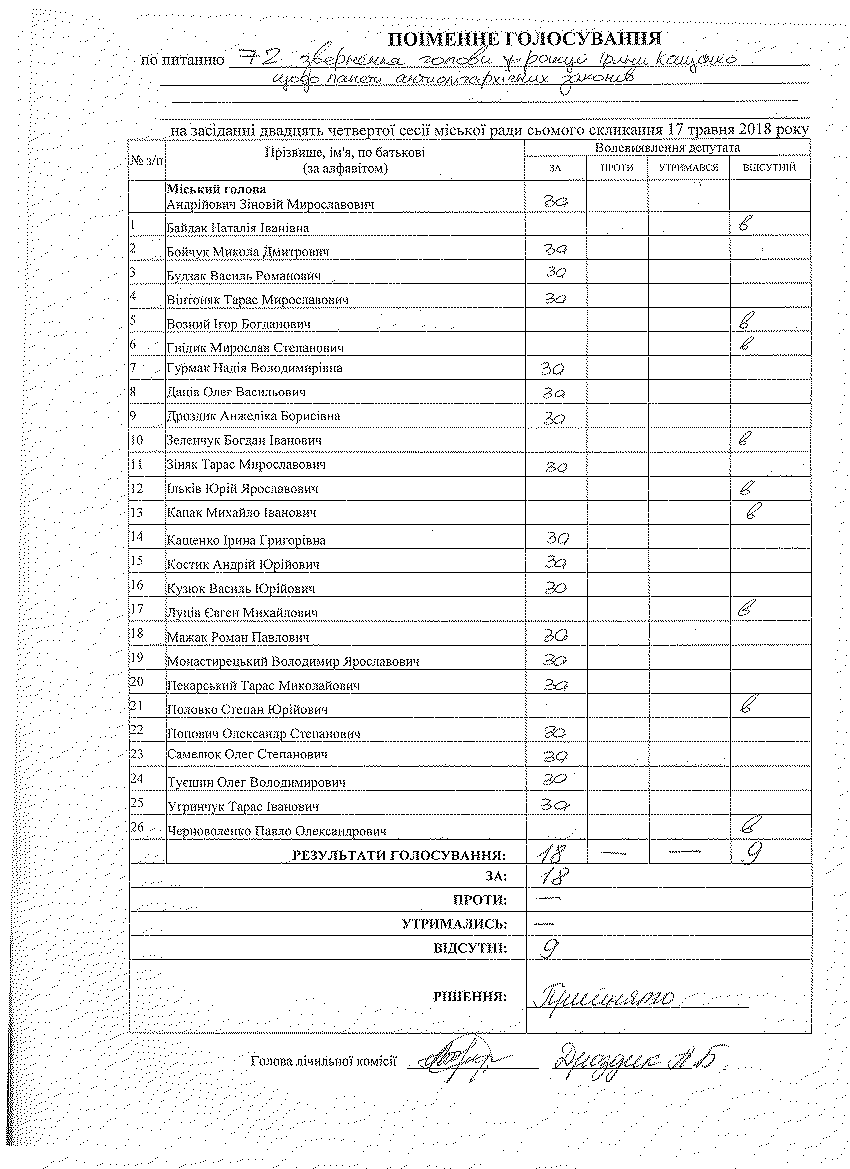 ПОІМЕННЕ ГОЛОСУВАННЯ
по питанню 72 звернення голови фракції Ірини Кащенко
щодо пакету антиолігархічних законів
на засіданні двадцять четвертої сесії міської ради сьомого скликання 17 травня 2018 року
№ з/п Прізвище, ім'я, по батькові (за алфавітом) Волевиявлення депутата
ЗА ПРОТИ УТРИМАВСЯ ВІДСУТНІЙ
Міський голова
Андрійович Зіновій Мирославович за
1 Байдак Наталія Іванівна в
2 Бойчук Микола Дмитрович за
3 Будзак Василь Романович за
4 Вінтоняк Тарас Мирославович за
5 Возний Ігор Богданович в
6 Гнідик Мирослав Степанович в
7 Гурмак Надія Володимирівна за
8 Даців Олег Васильович за
9 Дроздик Анжеліка Борисівна за
10 Зеленчук Богдан Іванович в
11 Зіняк Тарас Мирославович за
12 Ільків Юрій Ярославович в
13 Капак Михайло Іванович в
14 Кащенко Ірина Григорівна за
15 Костик Андрій Юрійович за
16 Кузюк Василь Юрійович за
17 Луців Євген Михайлович в
18 Мажак Роман Павлович за
19 Монастирецький Володимир Ярославович за
20 Пекарський Тарас Миколайович за
21 Половко Степан Юрійович в
22 Попович Олександр Степанович за
23 Самелюк Олег Степанович за
24 Туєшин Олег Володимирович за
25 Угринчук Тарас Іванович за
26 Черноволенко Павло Олександрович в
РЕЗУЛЬТАТИ ГОЛОСУВАННЯ: 18 — — 9
ЗА: 18
ПРОТИ: —
УТРИМАЛИСЬ: —
ВІДСУТНІ: 9
РІШЕННЯ: Прийнято
Голова лічильної комісії Дроздик А.Б.